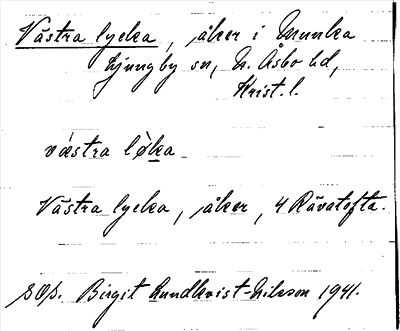 Västra lycka, åker i Munka
Ljungby sn, N. Åsbo hd,
Krist. l.
västra lø̀ka
Västra lycka, åker, 4 Rävatofta.
SOP. Birgit Lundkvist-Nilsson 1941.